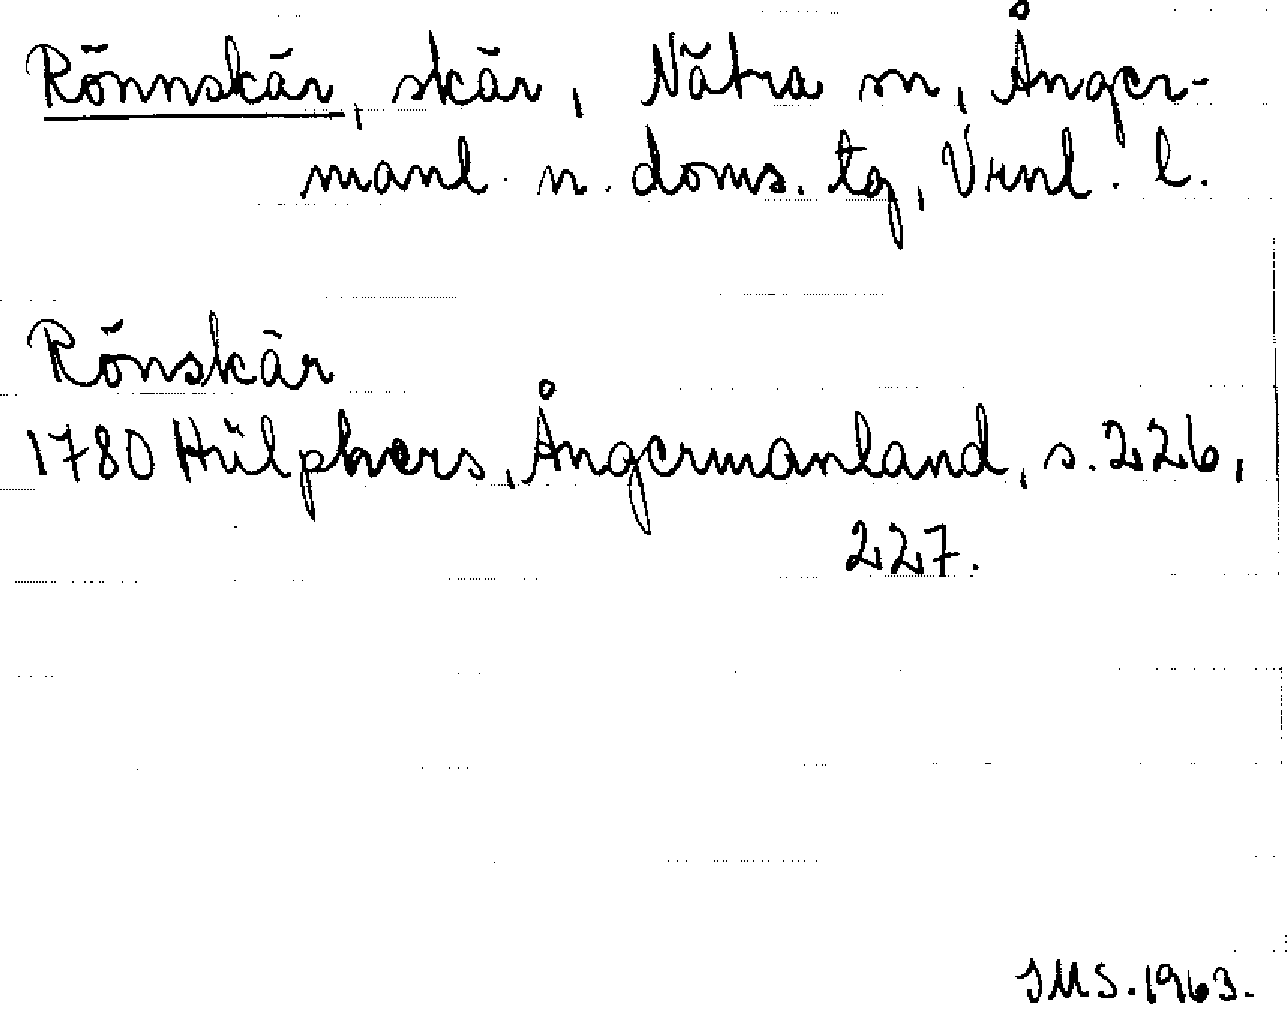 Rönnskär, skär, Nätra sn, Ånger-
manl. n. doms. tg, Vrnl. l.
Rönskär
1780 Hülphers, Ångermanland, s. 226,
227.
JMS. 1963.